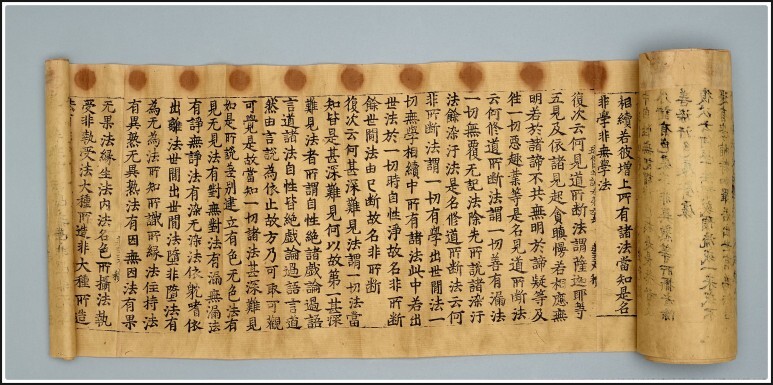 相續若彼增上所有諸法當知是名
非學非無學法
復次云何見道所斷法謂薩迦耶等
五見及依諸見起貪瞋慢若相應無
明若於諸諦不共無明於諦疑等及
往一切惡趣業等是名見道所斷法
云何修道所斷法謂一切善有漏法
一切無覆無記法除先所說諸染汙
法餘染汙法是名修道所斷法云何
非所斷法謂一切有學出世間法一
切無學相續中所有諸法此中若出
世法於一切時自性淨故名非所斷
餘世間法由已斷故名非所斷
復次云何甚深難見法謂一切法當
知皆是甚深難見何以故第一甚深
難見法者所謂自性絕諸戲論過語
言道諸法自性皆絕戲論過語言道
然由言說為依止故方乃可取可觀
可覺是故當知一切諸法甚深難見
如是所說差別建立有色无色法有
見无見法有對無對法有漏無漏法
有諍無諍法有染无染法依躭嗜依
出離法世間出世間法墮非墮法有
為无為法所知所識所緣法住持法
有異熟無異熟法有因無因法有果
无果法緣生法內法名色所攝法執
受非執受法大種所造非大種所造